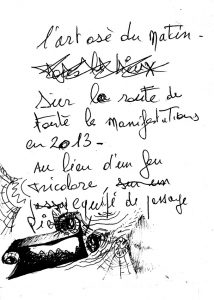 l'art osé du Matin -
Sur la route de
toute la manifestations
en 2013 -
Au lieu d'un feu
tricolore, sur un
équipé de passage